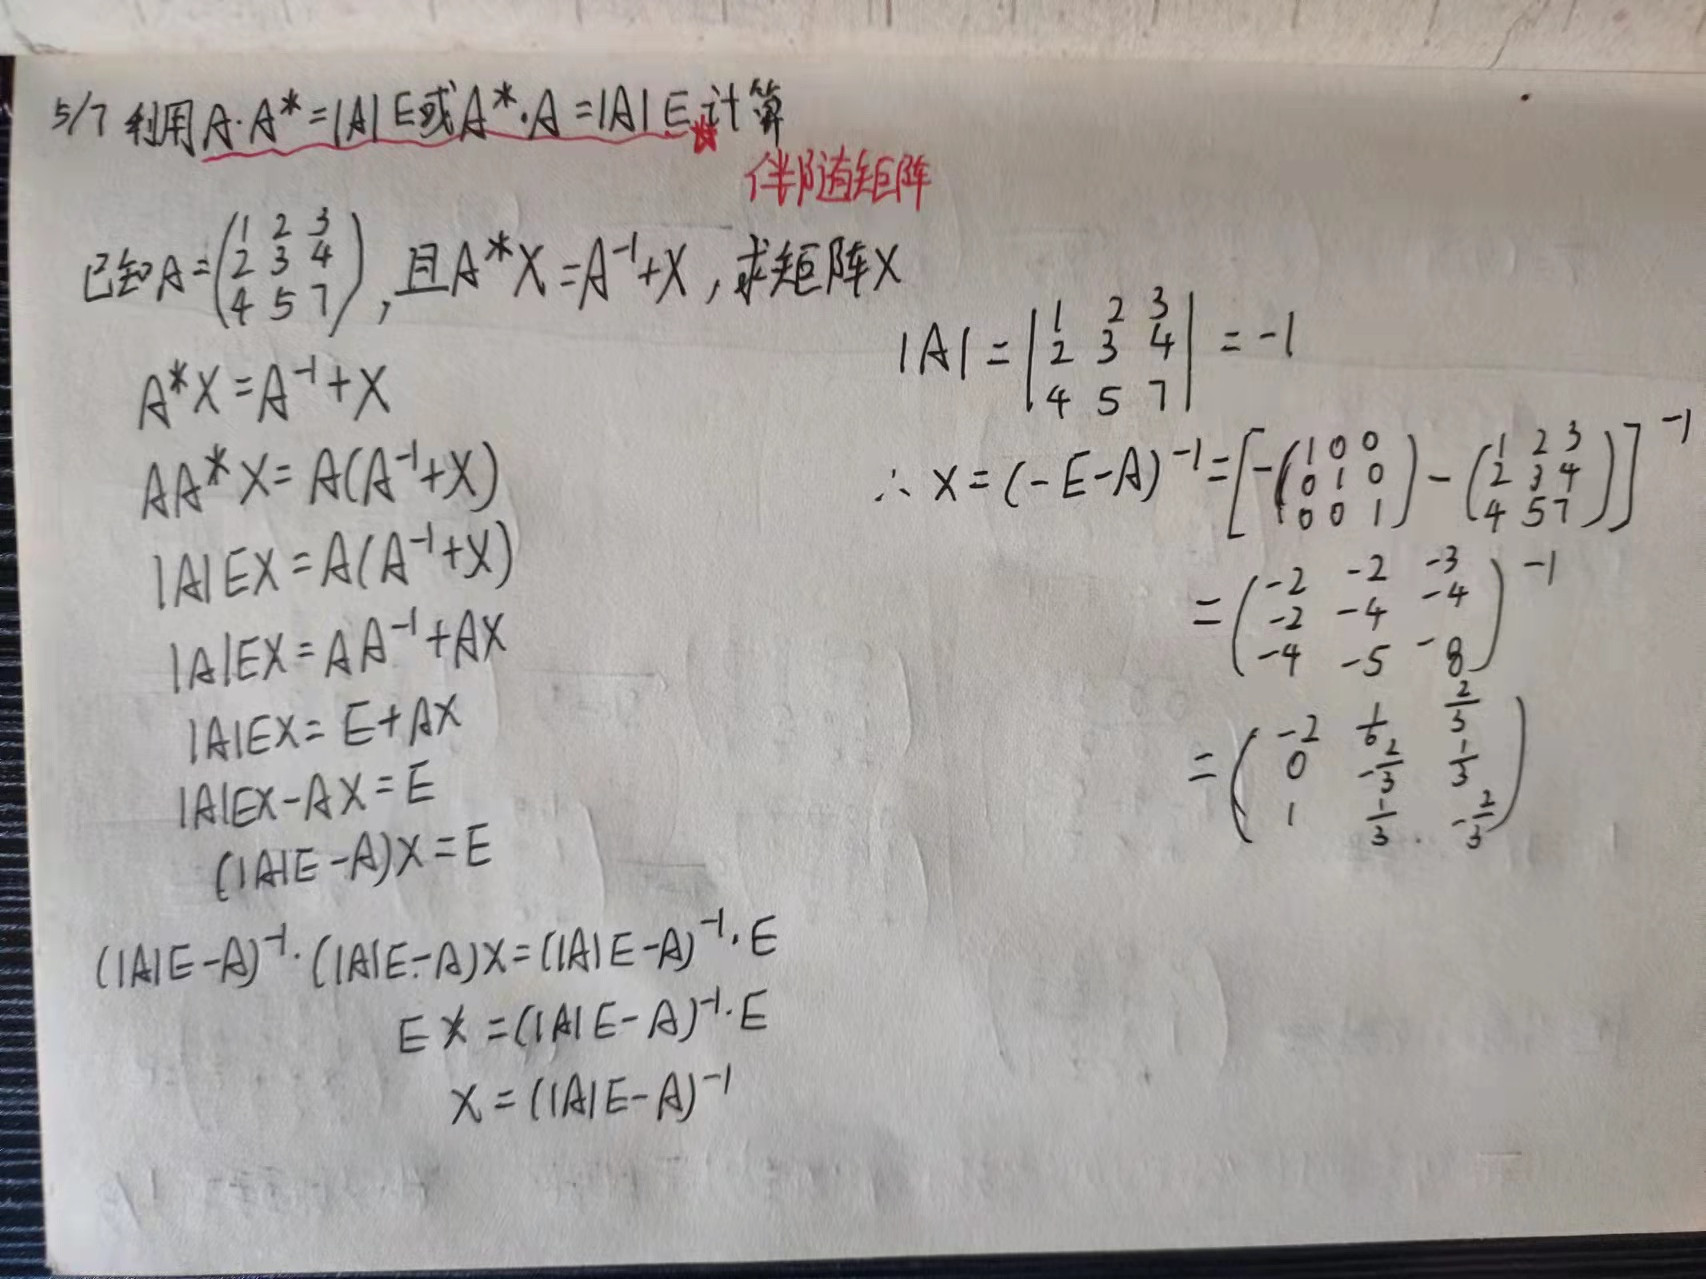 5/7 利用A·A*=|A|E或A*·A=|A|E计算
伴随矩阵
已知A=(1 2 3
2 3 4
4 5 7), 且A*X=A⁻¹+X, 求矩阵X
A*X=A⁻¹+X
AA*X=A(A⁻¹+X)
|A|EX=A(A⁻¹+X)
|A|EX=AA⁻¹+AX
|A|EX=E+AX
|A|EX-AX=E
(|A|E-A)X=E
(|A|E-A)⁻¹·(|A|E-A)X=(|A|E-A)⁻¹·E
EX=(|A|E-A)⁻¹·E
X=(|A|E-A)⁻¹
|A|=|1 2 3
2 3 4
4 5 7|=-1
∴X=(-E-A)⁻¹=[-(1 0 0
0 1 0
0 0 1)-(1 2 3
2 3 4
4 5 7)]⁻¹
=(-2 -2 -3
-2 -4 -4
-4 -5 -8)⁻¹
=(-2 1/6 2/3
0 -2/3 1/3
1 1/3 -2/3)